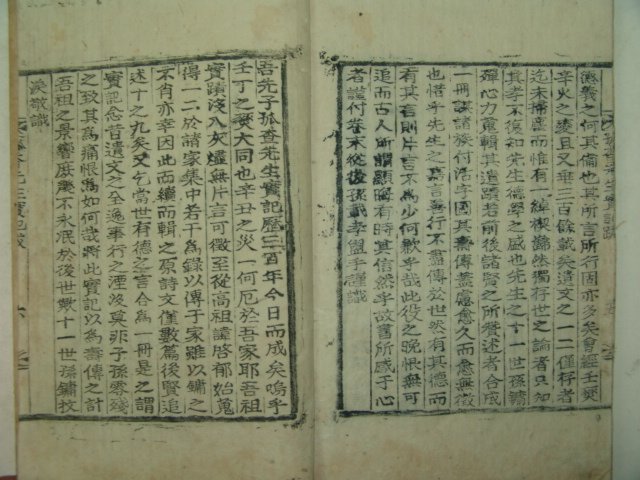 懿義之何其備也其所言所行固亦多矣會經壬燹
辛火之變且又畢三百餘載矣遺文之一二僅存者
迄未稱壽而惟有一線楔巋然獨存世之論者只知
其孝不復知先生德學之盛也先生之十一世孫鏞
殫心力蒐輯其遺蹟若前後諸賢之所嘗述者合成
一冊謀諸族付活字圖其壽傳蓋慮愈久而愈無徵
也惜乎先生之嘉言善行不盡傳於世然有其德而
有其言則片言不為少何歎乎哉此役之晚恨無可
追而古人所謂顯晦有時其信然乎故書所感于心
者謹付卷末後孫載孝盥手謹識
吾先子孤查先生實記歷三百年今日而成矣嗚乎
壬丁之燹大同也辛丑之災一何厄於吾家耶吾祖
實蹟沒入灰燼無片言可徵至從高祖諱啓郁始蒐
得一二於諸家集中若干為錄以傳于家雖以鏞之
不肖亦幸因此而續而輯之原詩文僅數篇後賢追
述十之九矣又乞當世有德之言合為一冊是之謂
實記念昔遺文之全逸事行之湮沒莫非子孫零殘
之致其為痛恨為如何哉將此實記以為壽傳之計
吾祖之景響庶幾不永泯於後世歟十一世孫鏞抆
淚敬識